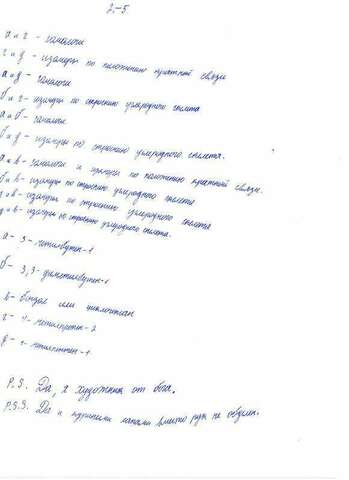 2-5
а и г - гомологи
г и д - изомеры по положению кратной связи
а и д - гомологи
б и г - изомеры по строению углеродного скелета
а и б - гомологи
б и д - изомеры по строению углеродного скелета.
а и в - гомологи и изомеры по положению кратной связи.
б и в - изомеры по строению углеродного скелета
г и в - изомеры по строению углеродного скелета
д и в - изомеры по строению углеродного скелета.
а - 3-метилбутен-1
б - 3,3-диметилбутен-1
в - или циклогексан
г - 4-метилпентен-2
д - 2-метилпентен-1
P.S. Да, я художник от бога.
P.S.S. Да и куриными лапами вместо рук не обделен.